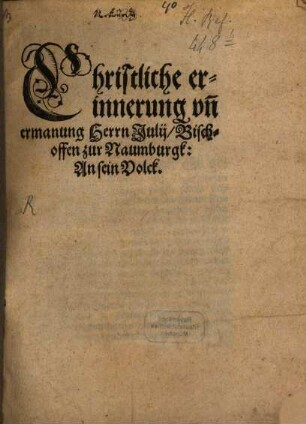 4º
Christliche er⸗
innerung vñ
ermanung Herrn Julij / Bisch⸗
offen zur Naumburgk:
An sein Volck.
R